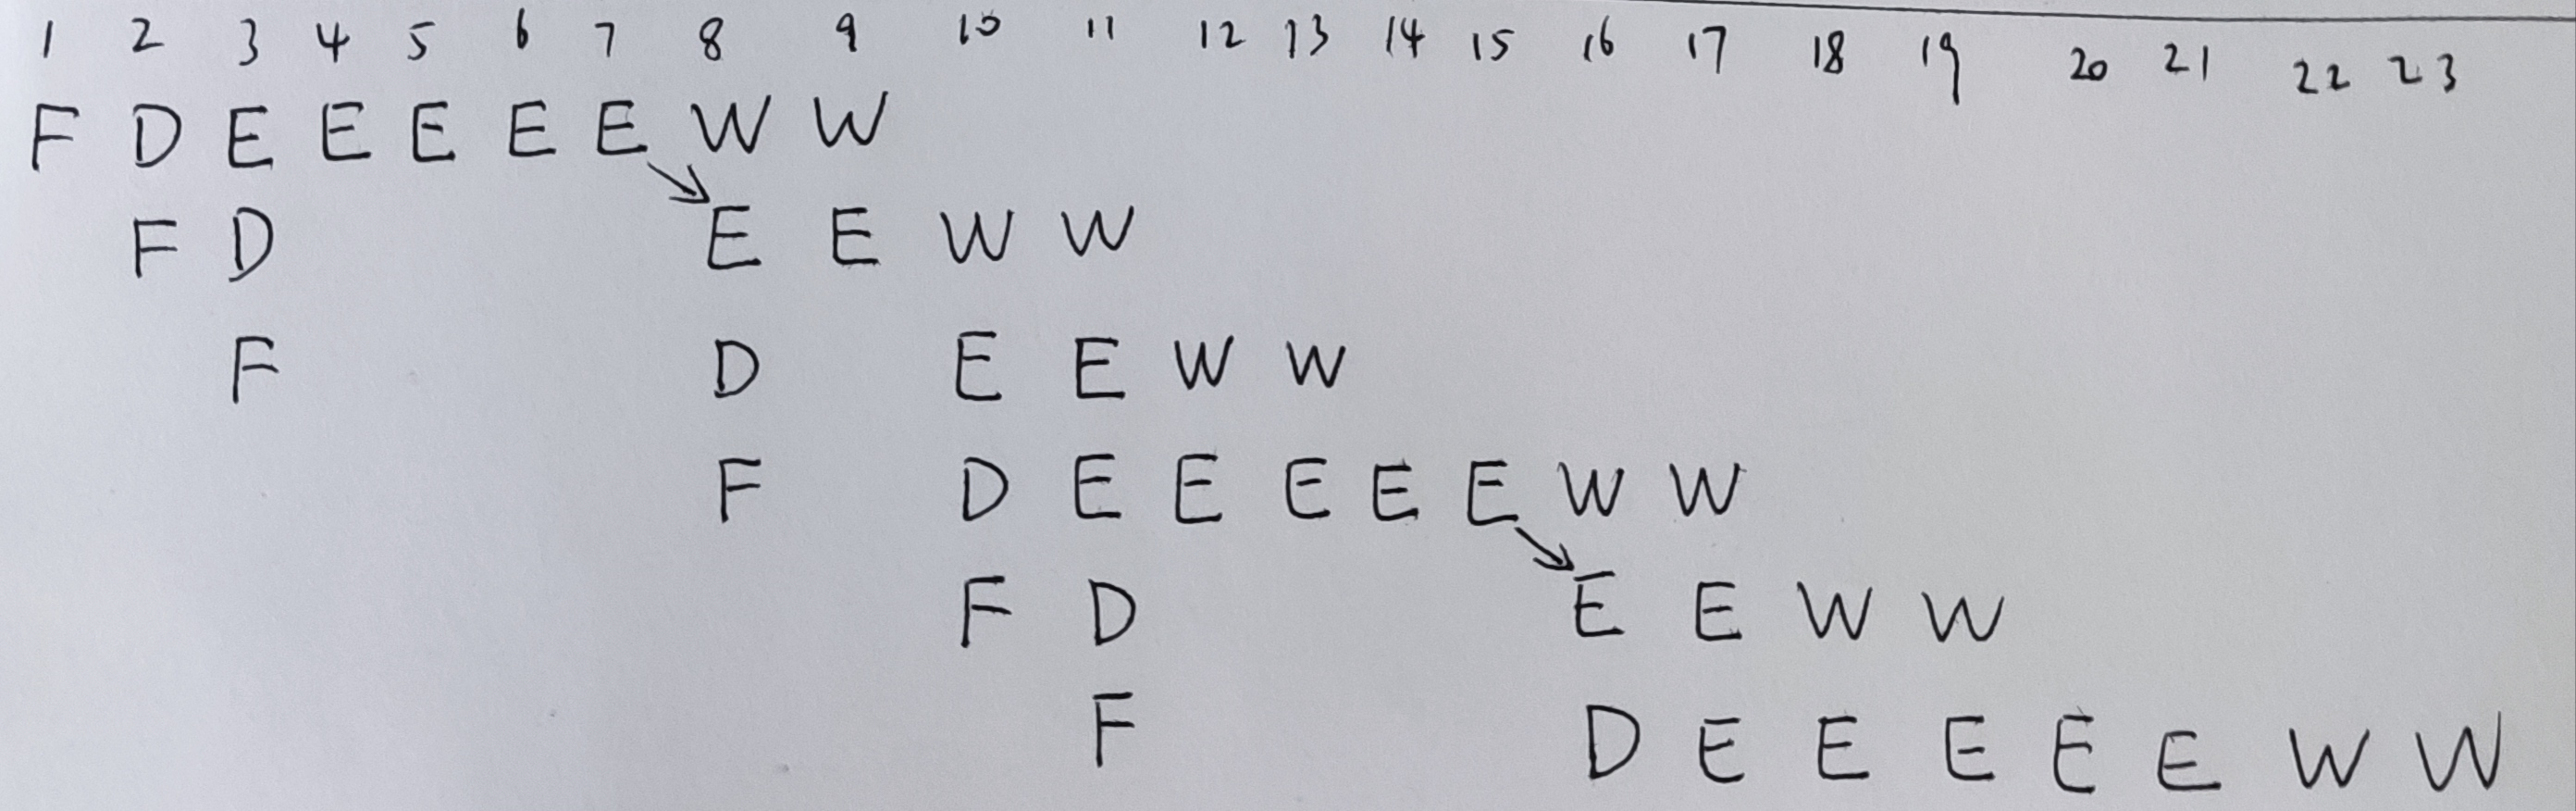 1 2 3 4 5 6 7 8 9 10 11 12 13 14 15 16 17 18 19 20 21 22 23
F D E E E E E W W
F D E E W W
F D E E W W
F D E E E E E W W
F D E E W W
F D E E E E E W W